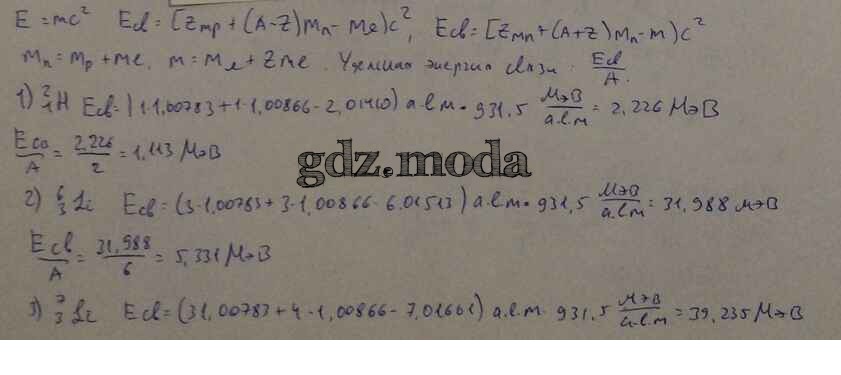 E = mc² Eсв = [Zmp + (A-Z)mn - mя)c², Eсв = [Zmн + (A+Z)mn - m)c²
mн = mp + me, m = mя + Zme. Удельная энергия связи: Eсв/A.
1) ²₁H Eсв = (1·1,00783 + 1·1,00866 - 2,01410) а.е.м · 931,5 МэВ/а.е.м = 2,226 МэВ
Eсв/A = 2,226/2 = 1,113 МэВ
gdz.moda
2) ⁶₃Li Eсв = (3·1,00783 + 3·1,00866 - 6,01513) а.е.м · 931,5 МэВ/а.е.м = 31,988 МэВ
Eсв/A = 31,988/6 = 5,331 МэВ
3) ⁷₃Li Eсв = (31,00783 + 4·1,00866 - 7,01601) а.е.м. 931,5 МэВ/а.е.м = 39,235 МэВ